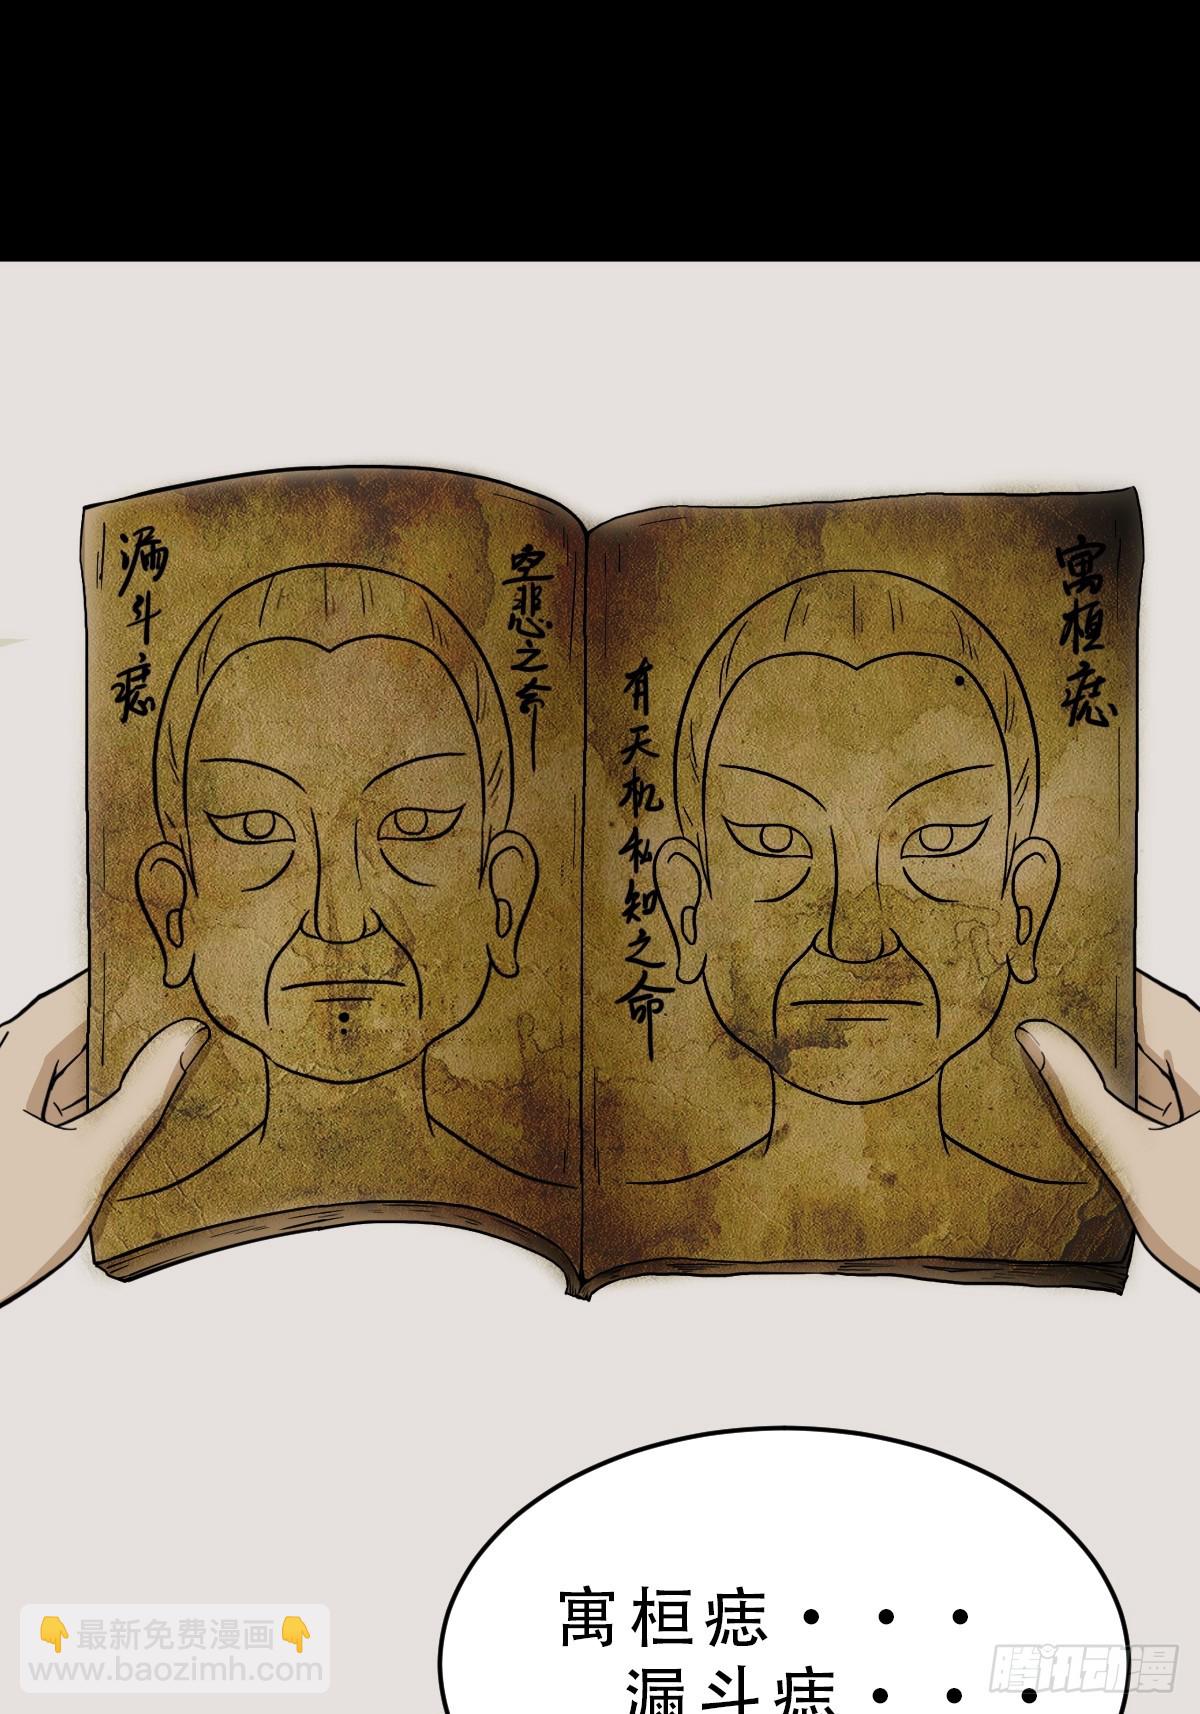 漏斗痣
空悲之命
寓桓痣
有天机私知之命
寓桓痣···
漏斗痣···
👇最新免费漫画👇
www.baozimh.com
腾讯动漫